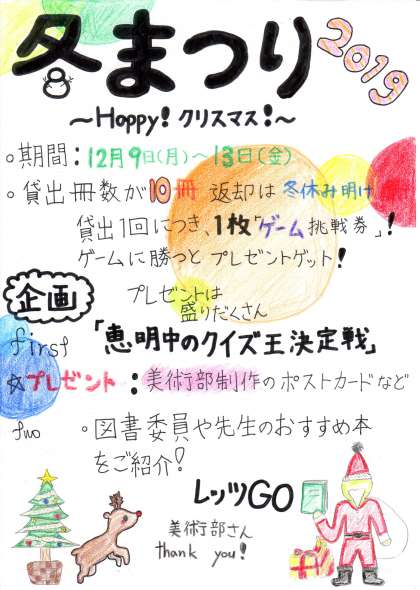 冬まつり 2019
～Hoppy！クリスマス！～
◦期間：12月9日(月)～13日(金)
◦貸出冊数が10冊 返却は冬休み明け
貸出1回につき、1枚「ゲーム挑戦券」！
ゲームに勝つとプレゼントゲット！
企画 プレゼントは
盛りだくさん
first 「恵明中のクイズ王決定戦」
☆プレゼント：美術部制作のポストカードなど
two ◦図書委員や先生のおすすめ本
をご紹介！
レッツGO
美術部さん
thank you！